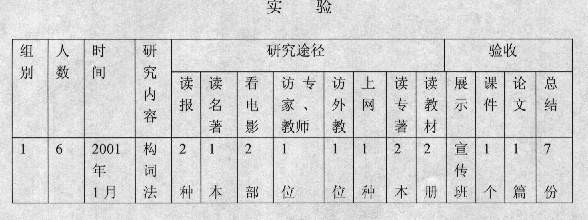 实 验
组别 人数 时间 研究内容 研究途径 验收
读报 读名著 看电影 访专家、教师 访外教 上网 读专著 读教材 展示 课件 论文 总结
1 6 2001年1月 构词法 2种 1本 2部 1位 1位 1种 2本 2册 宣传班 1个 1篇 7份